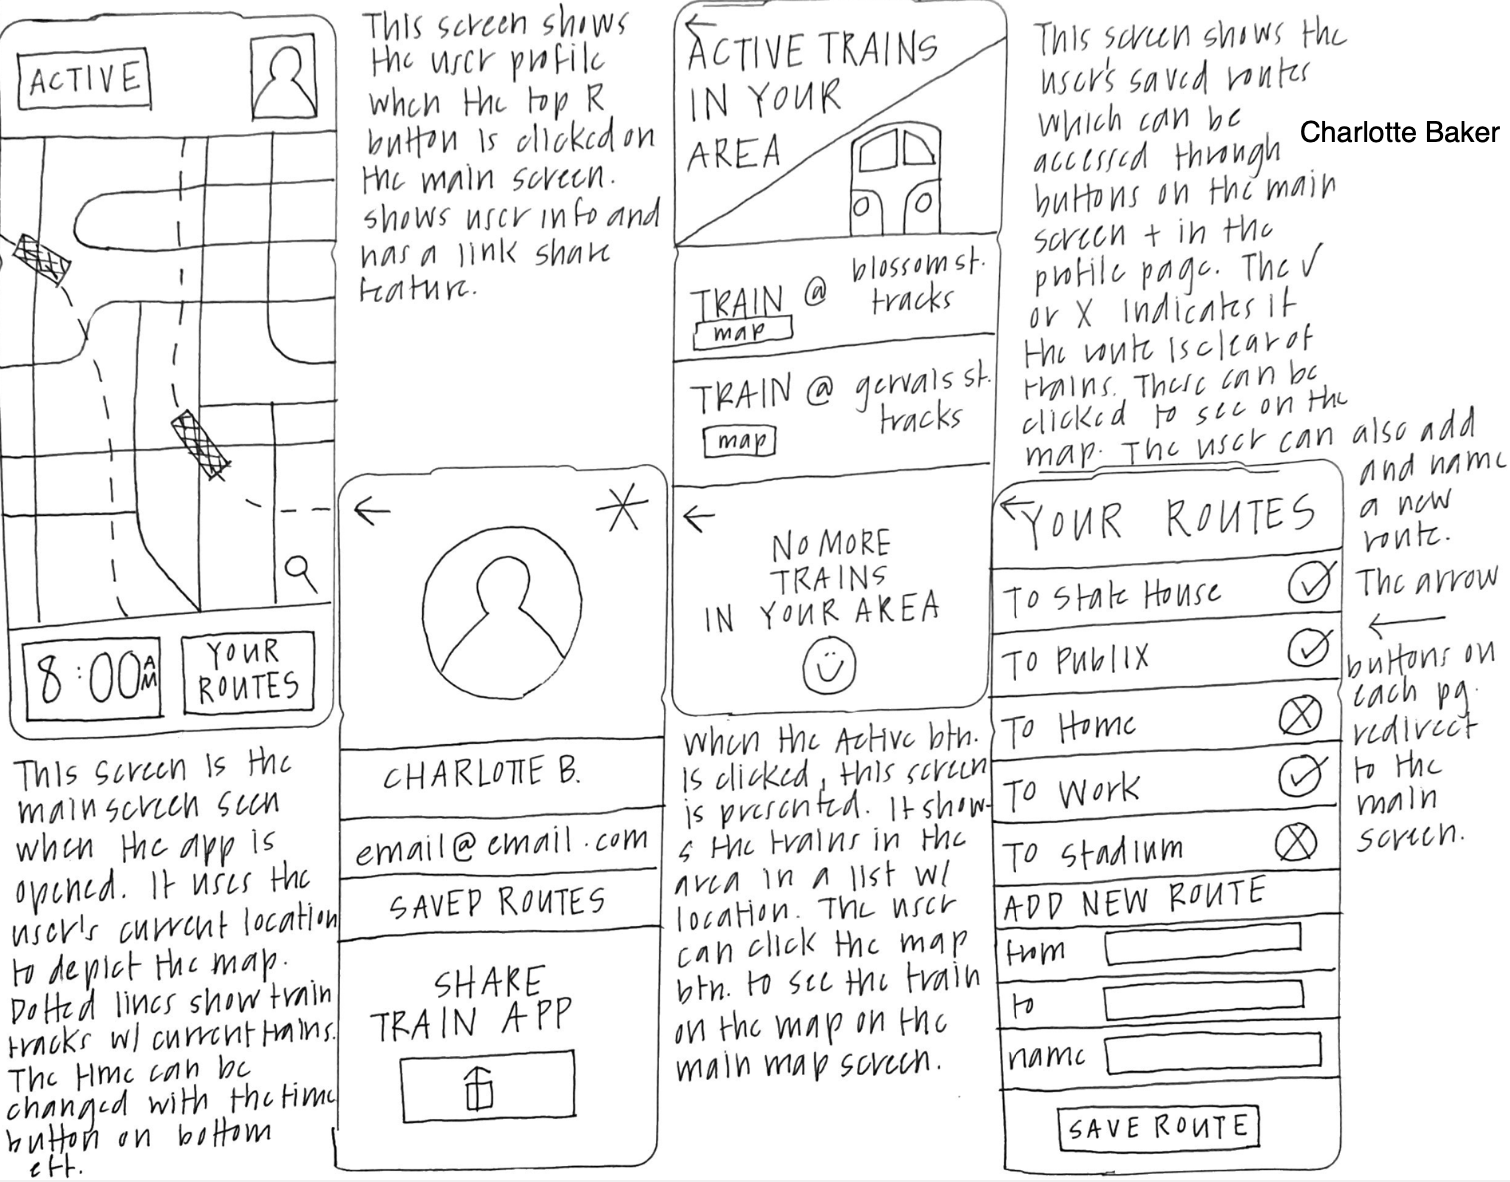 ACTIVE
8:00 AM
YOUR
ROUTES
This screen is the
main screen seen
when the app is
opened. It uses the
user's current location
to depict the map.
Dotted lines show train
tracks w/ current trains.
The time can be
changed with the time
button on bottom
eft.
This screen shows
the user profile
when the top R
button is clicked on
the main screen.
shows user info and
has a link share
feature.
←
CHARLOTTE B.
email@email.com
SAVED ROUTES
SHARE
TRAIN APP
←
ACTIVE TRAINS
IN YOUR
AREA
TRAIN @ blossom st.
tracks
map
TRAIN @ gervais st.
tracks
map
←
NO MORE
TRAINS
IN YOUR AREA
When the Active btn.
is clicked, this screen
is presented. It show-
s the trains in the
area in a list w/
location. The user
can click the map
btn. to see the train
on the map on the
main map screen.
This screen shows the
user's saved routes
which can be
Charlotte Baker
accessed through
buttons on the main
screen + in the
profile page. The ✓
or X indicates if
the route is clear of
trains. These can be
clicked to see on the
map. The user can also add
and name
a new
route.
The arrow
←
buttons on
each pg.
redirect
to the
main
screen.
←
YOUR ROUTES
TO State House
TO Publix
TO Home
TO Work
TO Stadium
ADD NEW ROUTE
from
to
name
SAVE ROUTE